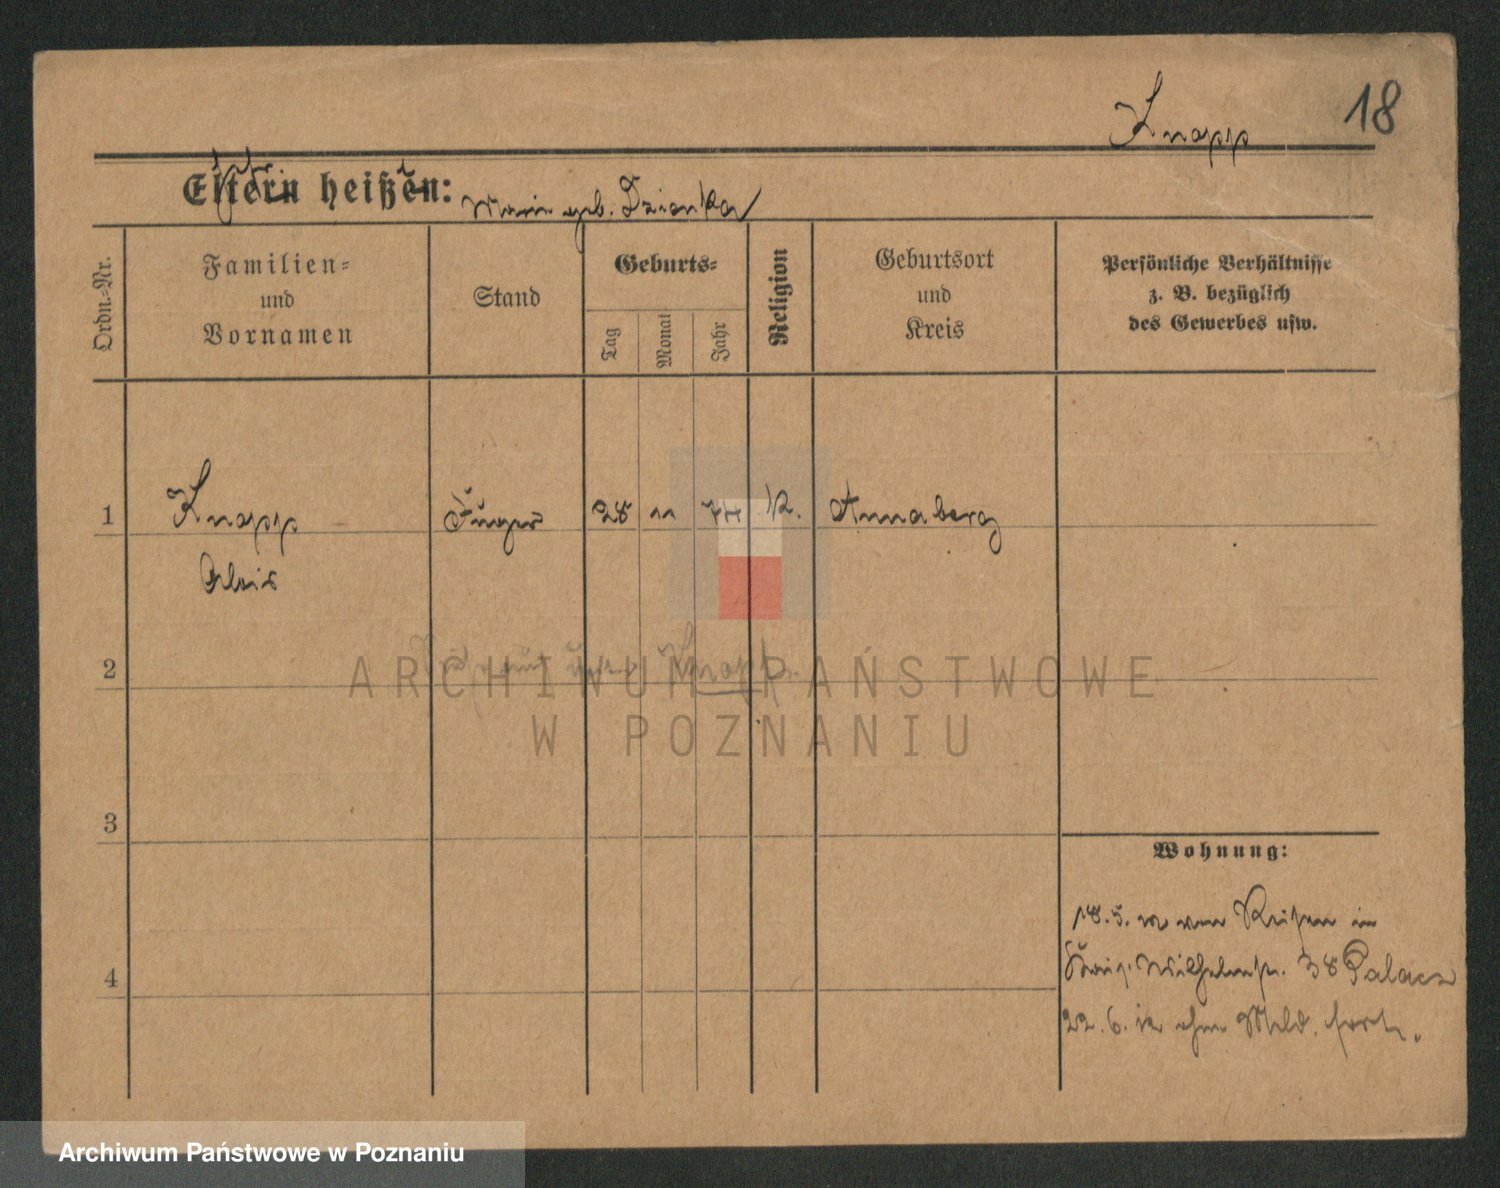 Knapp
18
Eltern heißen:
Marie geb. Dzionka
Ordn.=Nr.
Familien=
und
Vornamen
Stand
Geburts=
Tag
Monat
Jahr
Religion
Geburtsort
und
Kreis
Persönliche Verhältnisse
z. B. bezüglich
des Gewerbes usw.
1
Knapp
28
11
K.
Annaberg
Alois
2
Knapp
ARCHIWUM PAŃSTWOWE
W POZNANIU
3
Wohnung:
18.5. von in
Wilhelmstr. 38 Palace
4
22.6. ohne Meld. fort.
Archiwum Państwowe w Poznaniu